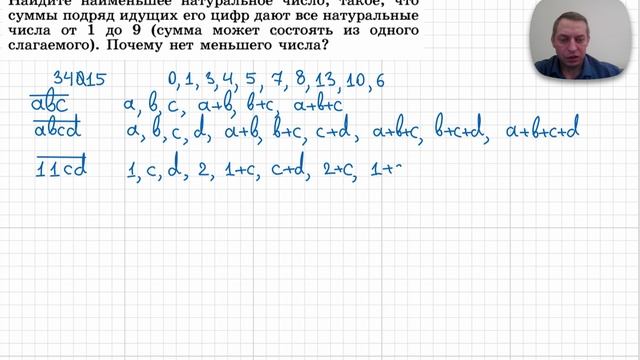 Найдите наименьшее натуральное число, такое, что
суммы подряд идущих его цифр дают все натуральные
числа от 1 до 9 (сумма может состоять из одного
слагаемого). Почему нет меньшего числа?
0, 1, 3, 4, 5, 7, 8, 13, 10, 6
abc a, b, c, a+b, b+c, a+b+c
abcd a, b, c, d, a+b, b+c, c+d, a+b+c, b+c+d, a+b+c+d
11cd 1, c, d, 2, 1+c, c+d, 2+c, 1+